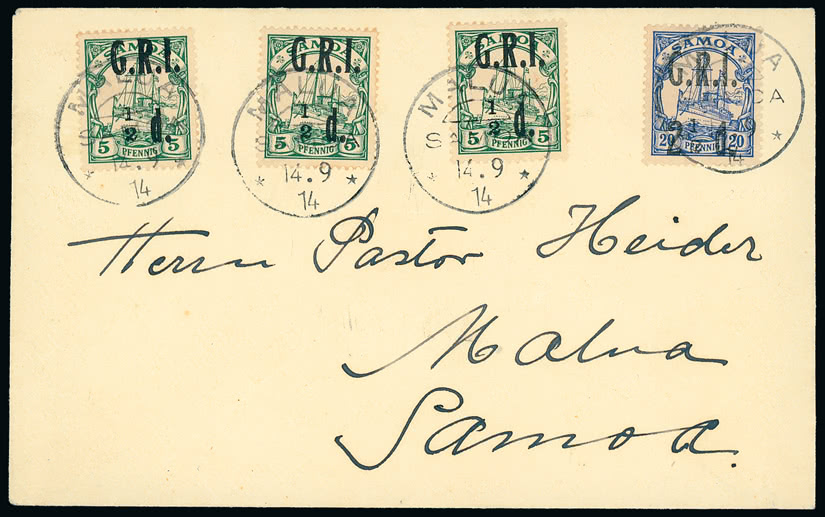 SAMOA SAMOA SAMOA SAMOA
G.R.I. G.R.I. G.R.I. G.R.I.
1/2 d. 1/2 d. 1/2 d. 2 1/2 d.
5 PFENNIG 5 5 PFENNIG 5 5 PFENNIG 5 20 PFENNIG 20
14.9 14.9 14.9
14 14 14 14
Herrn Pastor Heider
Malua
Samoa.